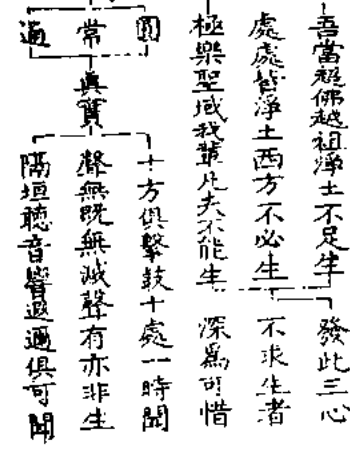 吾當超佛越祖淨土不足生
處處皆淨土西方不必生
極樂聖域我輩凡夫不能生
發此三心
不求生者
深為可惜
圓
常
通
真實
十方俱擊鼓十處一時聞
聲無既無滅聲有亦非生
隔垣聽音響遐邇俱可聞